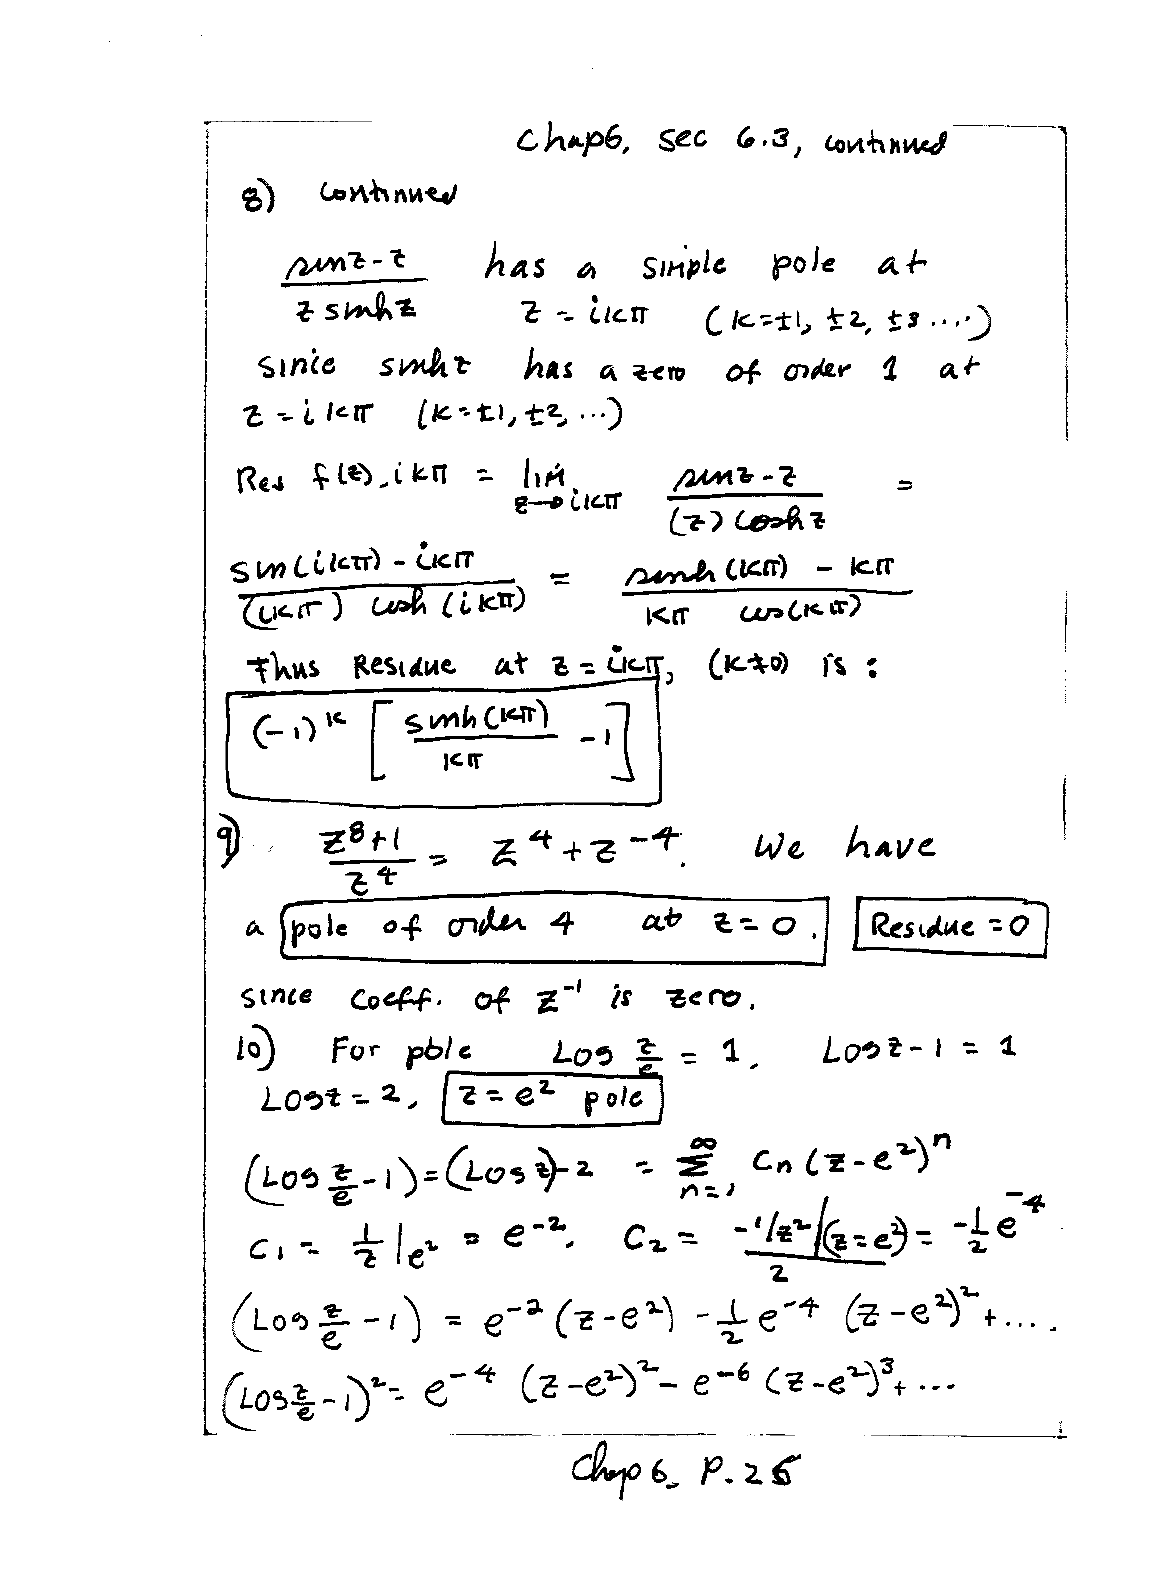 Chap6, sec 6.3, continued
8) continued
sinz-z / z sinhz has a simple pole at z = ikπ (k=±1, ±2, ±3 ....)
since sinhz has a zero of order 1 at
z = ikπ (k=±1, ±2, ...)
Res f(z), ikπ = lim z→ikπ sinz-z / (z) cosh z =
sin(ikπ) - ikπ / (ikπ) cosh (ikπ) = sinh (kπ) - kπ / kπ cos(kπ)
Thus Residue at z = ikπ, (k≠0) is :
(-1)^k [ sinh(kπ) / kπ - 1 ]
9) z^8+1 / z^4 = z^4 + z^-4. We have
a pole of order 4 at z=0. Residue = 0
since coeff. of z^-1 is zero.
10) For pole Log z/e = 1, Log z - 1 = 1
Log z = 2, z = e^2 pole
(Log z/e - 1) = (Log z) - 2 = ∑ n=1 ∞ Cn (z-e^2)^n
C1 = 1/z |e^2 = e^-2, C2 = -1/z^2 |(z=e^2) / 2 = -1/2 e^-4
(Log z/e - 1) = e^-2 (z-e^2) - 1/2 e^-4 (z-e^2)^2 + ....
(Log z/e - 1)^2 = e^-4 (z-e^2)^2 - e^-6 (z-e^2)^3 + ...
Chap 6, p. 25